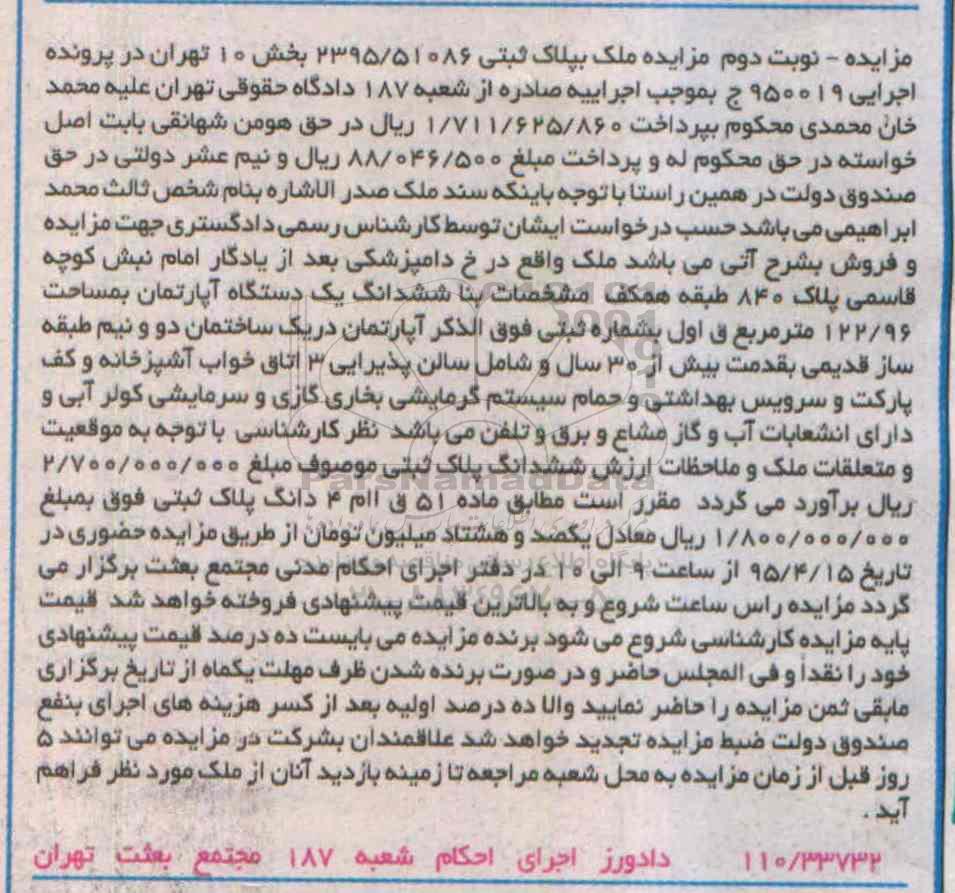 مزایده - نوبت دوم مزایده ملک بپلاک ثبتی ۲۳۹۵/۵۱۰۸۶ بخش ۱۰ تهران در پرونده
اجرایی ۹۵۰۰۱۹ ج بموجب اجراییه صادره از شعبه ۱۸۷ دادگاه حقوقی تهران علیه محمد
خان محمدی محکوم بپرداخت ۱/۷۱۱/۶۲۵/۸۶۰ ریال در حق هومن شهانقی بابت اصل
خواسته در حق محکوم له و پرداخت مبلغ ۸۸/۰۴۶/۵۰۰ ریال و نیم عشر دولتی در حق
صندوق دولت در همین راستا با توجه باینکه سند ملک صدر الاشاره بنام شخص ثالث محمد
ابراهیمی می باشد حسب درخواست ایشان توسط کارشناس رسمی دادگستری جهت مزایده
و فروش بشرح آتی می باشد ملک واقع در خ دامپزشکی بعد از یادگار امام نبش کوچه
قاسمی پلاک ۸۴۰ طبقه همکف مشخصات بنا ششدانگ یک دستگاه آپارتمان بمساحت
۱۲۲/۹۶ مترمربع ق اول بشماره ثبتی فوق الذکر آپارتمان دریک ساختمان دو و نیم طبقه
ساز قدیمی بقدمت بیش از ۳۰ سال و شامل سالن پذیرایی ۳ اتاق خواب آشپزخانه و کف
پارکت و سرویس بهداشتی و حمام سیستم گرمایشی بخاری گازی و سرمایشی کولر آبی و
دارای انشعابات آب و گاز مشاع و برق و تلفن می باشد نظر کارشناسی با توجه به موقعیت
و متعلقات ملک و ملاحظات ارزش ششدانگ پلاک ثبتی موصوف مبلغ ۲/۷۰۰/۰۰۰/۰۰۰
ریال برآورد می گردد مقرر است مطابق ماده ۵۱ ق اام ۴ دانگ پلاک ثبتی فوق بمبلغ
۱/۸۰۰/۰۰۰/۰۰۰ ریال معادل یکصد و هشتاد میلیون تومان از طریق مزایده حضوری در
تاریخ ۹۵/۴/۱۵ از ساعت ۹ الی ۱۰ در دفتر اجرای احکام مدنی مجتمع بعثت برگزار می
گردد مزایده راس ساعت شروع و به بالاترین قیمت پیشنهادی فروخته خواهد شد قیمت
پایه مزایده کارشناسی شروع می شود برنده مزایده می بایست ده درصد قیمت پیشنهادی
خود را نقداً و فی المجلس حاضر و در صورت برنده شدن ظرف مهلت یکماه از تاریخ برگزاری
مابقی ثمن مزایده را حاضر نمایید والا ده درصد اولیه بعد از کسر هزینه های اجرای بنفع
صندوق دولت ضبط مزایده تجدید خواهد شد علاقمندان بشرکت در مزایده می توانند ۵
روز قبل از زمان مزایده به محل شعبه مراجعه تا زمینه بازدید آنان از ملک مورد نظر فراهم
آید.
۱۱۰/۳۳۷۳۲ دادورز اجرای احکام شعبه ۱۸۷ مجتمع بعثت تهران
ParsNamadData